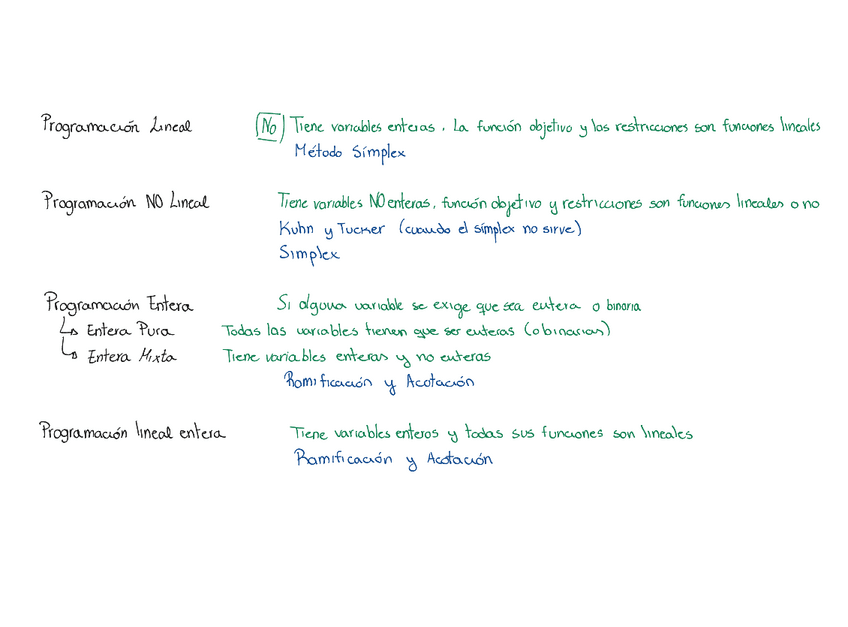 Programación Lineal No Tiene variables enteras. La función objetivo y las restricciones son funciones lineales
Método Símplex
Programación NO Lineal Tiene variables NO enteras, función objetivo y restricciones son funciones lineales o no
Kuhn y Tucker (cuando el símplex no sirve)
Simplex
Programación Entera Si alguna variable se exige que sea entera o binaria
Entera Pura Todas las variables tienen que ser enteras (o binarias)
Entera Mixta Tiene variables enteras y no enteras
Ramificación y Acotación
Programación lineal entera Tiene variables enteros y todas sus funciones son lineales
Ramificación y Acotación